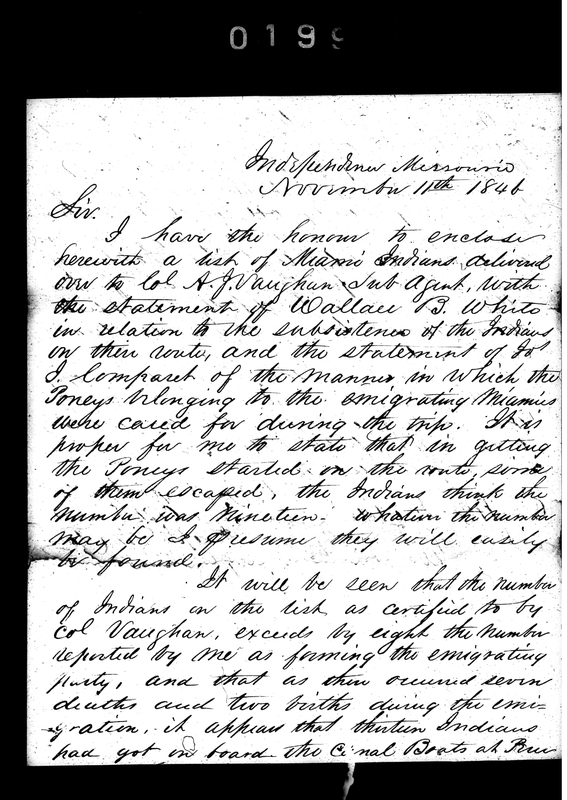 0199
Independence Missourie
November 11th 1846
Sir.
I have the honour to enclose
herewith a list of Miami Indians delivered
over to Col A. J. Vaughan Sub Agent, with
the statement of Wallace B. White
in relation to the subsistence of the Indians
on their route, and the statement of Jos
J. Comparet of the manner in which the
Poneys belonging to the emigrating Miamies
were cared for during the trip. It is
proper for me to state that in getting
the Poneys started on the route, some
of them escaped, the Indians think the
number was Nineteen. Whatever the number
may be I presume they will easily
be found.
It will be seen that the number
of Indians on the list as certified to by
Col Vaughan, exceeds by eight the number
reported by me as forming the emigrating
party, and that as there occurred seven
deaths and two births during the emi-
gration, it appears that thirteen Indians
had got on board the Canal Boats at Peru